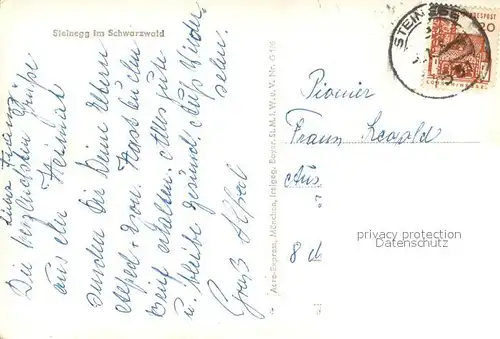 Steinegg im Schwarzwald
Lieber Franz
Die herzlichsten Grüße
aus der Heimat
senden Dir Deine Eltern
Alfred u.
Brief erhalten. Alles gute
u. bleibe gesund. Auf Wieder
sehn.
Gruß Alfred
Aero-Express, München, freigeg. Bayer. St. M. f. W. u. V. Nr. G
STEINEGG
BUNDESPOST
20
Pionier
Franz Leopold
Aus
8
privacy protection
www.ansichtskarten-center.de